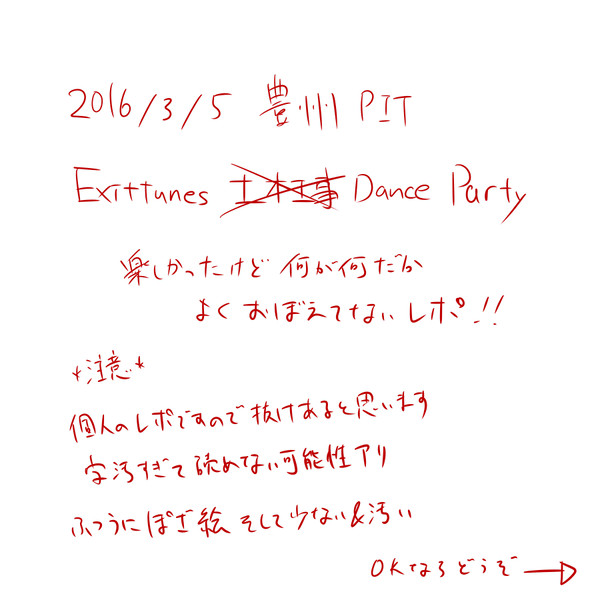 2016/3/5 豊州 PIT
Exittunes 土木工事 Dance Party
楽しかったけど 何が何だか
よく おぼえてない レポ!!
*注意*
個人のレポですので 抜けあると思います
字汚すぎて 読めない可能性アリ
ふつうに ぽざ絵 そして少ない&汚い
OKなら どうぞ→